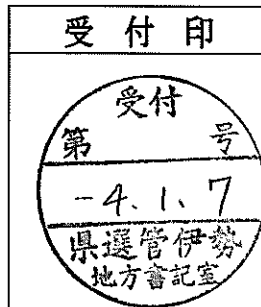 受付印
受付
第 号
-4.1.7
県選管伊勢
地方書記室